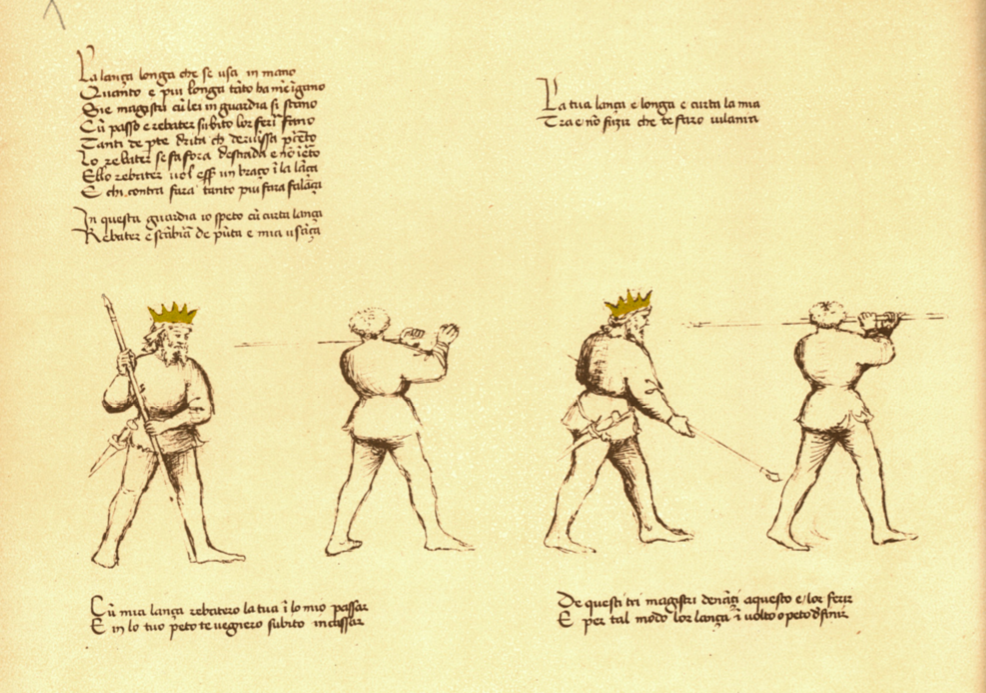 La lança longa che se usa in mano
Quanto e piu longa tãto ha mẽ ĩgano
Sie magistri cũ lei in guardia si stano
Cũ passo e rebater subito lor feriř fano
Tanti de pte drita ch deriuissa p̃sto
Lo rebater se fa fora de strada e nõ ĩsto
E llo rebater uol eser un braço ĩ la lãça
E chi contra fara tanto piu fara falãça
In questa guardia io speto cũ curta lança
Rebater e scãbiar de pũta e mia usãça
La tua lança e longa e curta la mia
Tra e nõ fuzir che te faro uilania
Cũ mia lança rebatero la tua ĩ lo mio passar
E in lo tuo peto te uegniero subito incassar
De questi tri magistri denãçi aquesto e lor ferir
E per tal modo lor lança ĩ uolto o peto dẽ finir